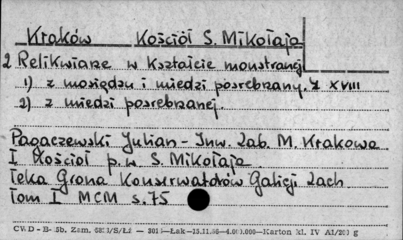 Kraków Kościół S. Mikołaja
2 Relikwiarze w kształcie monstrancji
1) z mosiądzu i miedzi posrebrzany. z XVIII
2) z miedzi posrebrzanej.
Pagaczewski Julian - Inw. Zab. M. Krakowa
I Kościoł p.w. S. Mikołaja
Teka Grona Konserwatorów Galicji Zach
Tom I MCM s. 75
CWD - B- 5b, Zam. Karton kl. IV